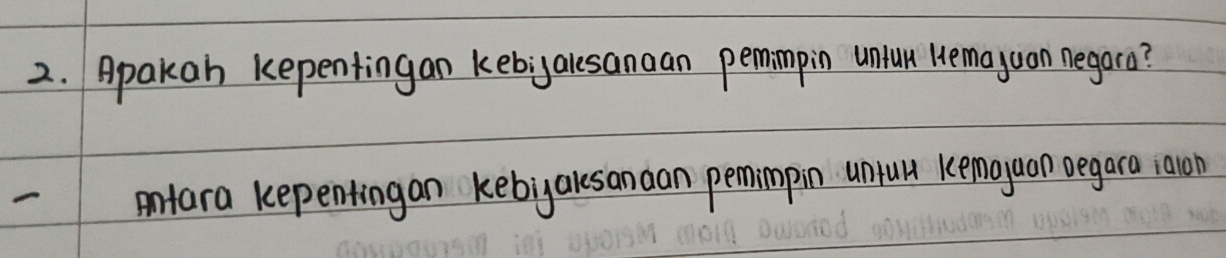 2. Apakah kepentingan kebijaksanaan pemimpin untuk kemajuan negara?
- antara kepentingan kebijaksanaan pemimpin untuk kemajuan negara ialah